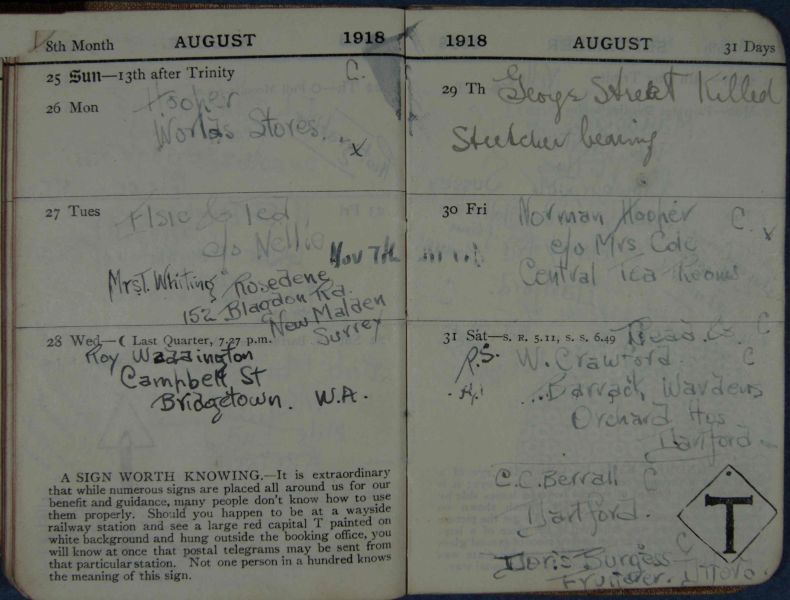 8th Month AUGUST 1918
25 Sun—13th after Trinity C.
26 Mon Hooper
Worlds Stores. x
27 Tues Elsie & Ted
c/o Nellie
Nov 7th
Mrs T. Whiting Rosedene
152 Blagdon Rd.
New Malden
Surrey
28 Wed—☾ Last Quarter, 7.27 p.m.
Roy Warrington
Campbell St
Bridgetown. W.A.
A SIGN WORTH KNOWING.—It is extraordinary
that while numerous signs are placed all around us for our
benefit and guidance, many people don't know how to use
them properly. Should you happen to be at a wayside
railway station and see a large red capital T painted on
white background and hung outside the booking office, you
will know at once that postal telegrams may be sent from
that particular station. Not one person in a hundred knows
the meaning of this sign.
1918 AUGUST 31 Days
29 Th George Street Killed
Stretcher bearing
30 Fri Norman Hooper C. x
c/o Mrs Cole
Central Tea Rooms
31 Sat—S. R. 5.11, S. S. 6.49 C
P.S. W. Crawford C
Barrack Wardens
Orchard Hus
Dartford
C.C. Berrall C
Dartford.
T
Doris Burgess C
Ditto.